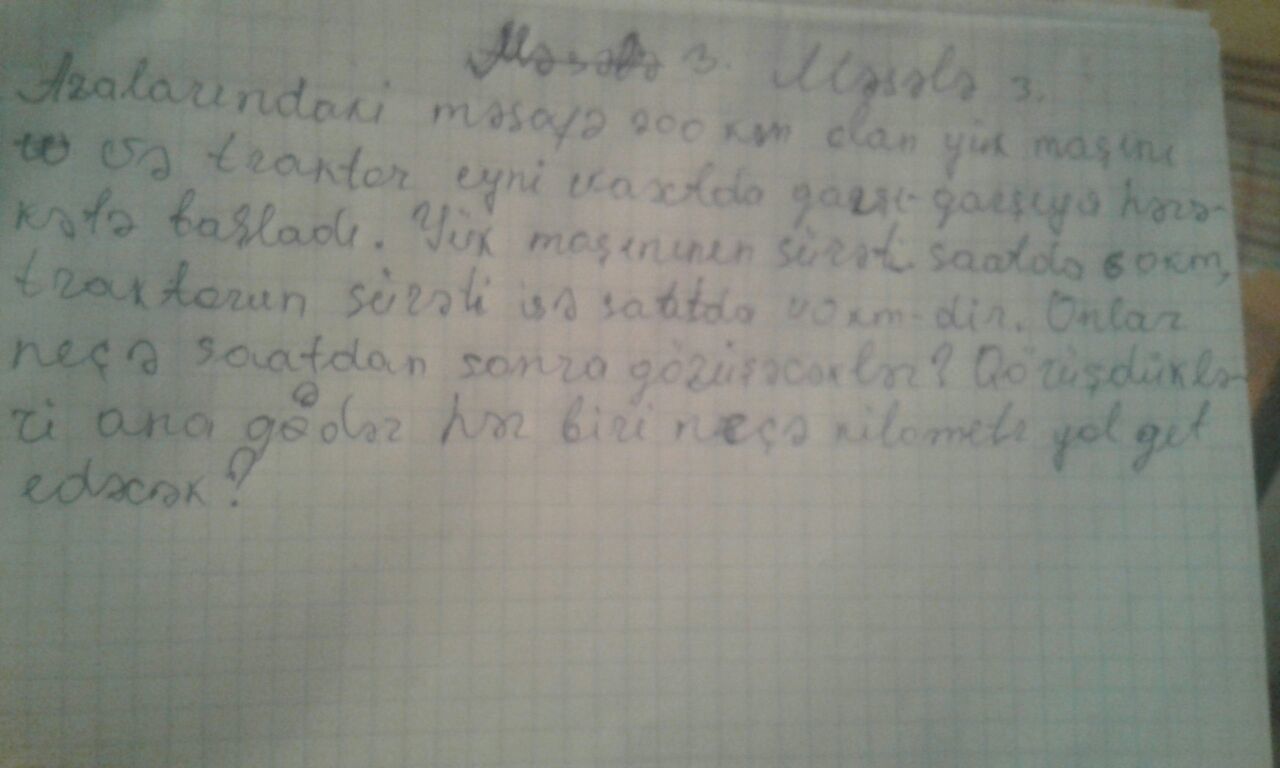 Məsələ 3. Məsələ 3.
Aralarındaki məsafə 200 km olan yük maşını
və traktor eyni vaxtda qarşı-qarşıya hərə-
kətə başladı. Yük maşınının sürəti saatda 60 km,
traktorun sürəti isə saatda 40 km-dir. Onlar
neçə saatdan sonra görüşəcəklər? Görüşdüklə-
ri ana qədər hər biri neçə kilometr yol qət
edəcək?